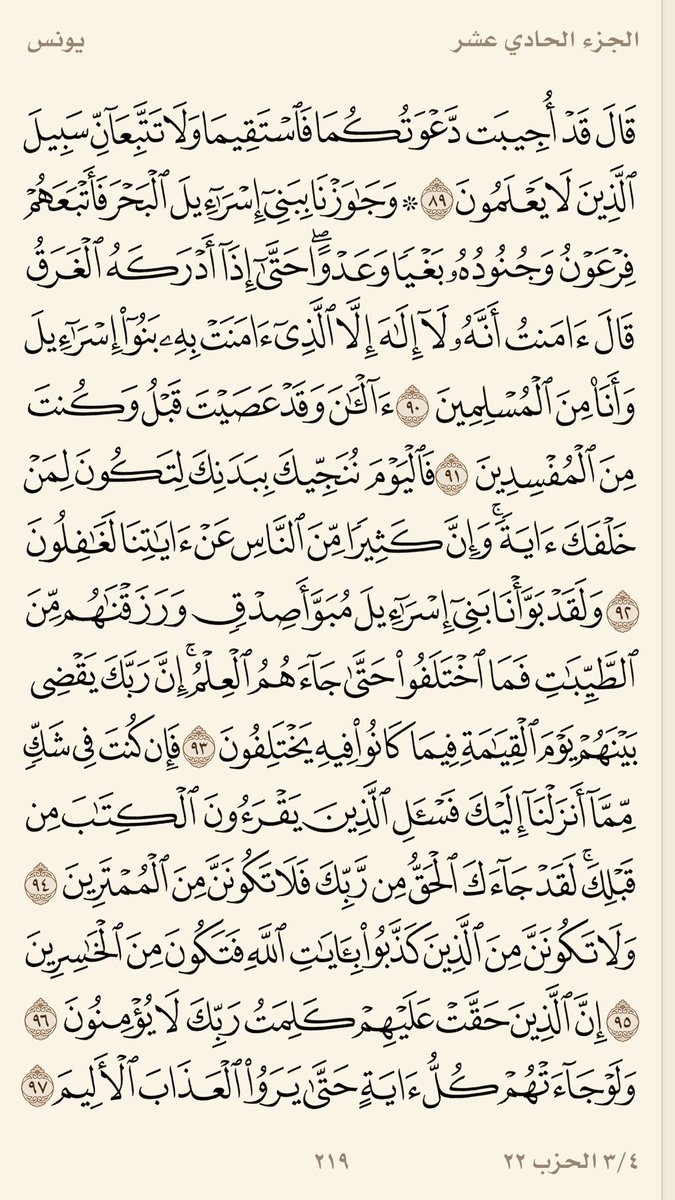 الجزء الحادي عشر
يونس
قَالَ قَدْ أُجِيبَت دَّعْوَتُكُمَا فَٱسْتَقِيمَا وَلَا تَتَّبِعَآنِّ سَبِيلَ
ٱلَّذِينَ لَا يَعْلَمُونَ ٨٩ ۞ وَجَٰوَزْنَا بِبَنِىٓ إِسْرَٰٓءِيلَ ٱلْبَحْرَ فَأَتْبَعَهُمْ
فِرْعَوْنُ وَجُنُودُهُۥ بَغْيًا وَعَدْوًا ۖ حَتَّىٰٓ إِذَآ أَدْرَكَهُ ٱلْغَرَقُ
قَالَ ءَامَنتُ أَنَّهُۥ لَآ إِلَٰهَ إِلَّا ٱلَّذِىٓ ءَامَنَتْ بِهِۦ بَنُوٓا۟ إِسْرَٰٓءِيلَ
وَأَنَا۠ مِنَ ٱلْمُسْلِمِينَ ٩٠ ءَآلْـَٰٔنَ وَقَدْ عَصَيْتَ قَبْلُ وَكُنتَ
مِنَ ٱلْمُفْسِدِينَ ٩١ فَٱلْيَوْمَ نُنَجِّيكَ بِبَدَنِكَ لِتَكُونَ لِمَنْ
خَلْفَكَ ءَايَةً ۚ وَإِنَّ كَثِيرًا مِّنَ ٱلنَّاسِ عَنْ ءَايَٰتِنَا لَغَٰفِلُونَ
٩٢ وَلَقَدْ بَوَّأْنَا بَنِىٓ إِسْرَٰٓءِيلَ مُبَوَّأَ صِدْقٍ وَرَزَقْنَٰهُم مِّنَ
ٱلطَّيِّبَٰتِ فَمَا ٱخْتَلَفُوا۟ حَتَّىٰ جَآءَهُمُ ٱلْعِلْمُ ۚ إِنَّ رَبَّكَ يَقْضِى
بَيْنَهُمْ يَوْمَ ٱلْقِيَٰمَةِ فِيمَا كَانُوا۟ فِيهِ يَخْتَلِفُونَ ٩٣ فَإِن كُنتَ فِى شَكٍّ
مِّمَّآ أَنزَلْنَآ إِلَيْكَ فَسْـَٔلِ ٱلَّذِينَ يَقْرَءُونَ ٱلْكِتَٰبَ مِن
قَبْلِكَ ۚ لَقَدْ جَآءَكَ ٱلْحَقُّ مِن رَّبِّكَ فَلَا تَكُونَنَّ مِنَ ٱلْمُمْتَرِينَ ٩٤
وَلَا تَكُونَنَّ مِنَ ٱلَّذِينَ كَذَّبُوا۟ بِـَٔايَٰتِ ٱللَّهِ فَتَكُونَ مِنَ ٱلْخَٰسِرِينَ
٩٥ إِنَّ ٱلَّذِينَ حَقَّتْ عَلَيْهِمْ كَلِمَتُ رَبِّكَ لَا يُؤْمِنُونَ ٩٦
وَلَوْ جَآءَتْهُمْ كُلُّ ءَايَةٍ حَتَّىٰ يَرَوُا۟ ٱلْعَذَابَ ٱلْأَلِيمَ ٩٧
٣/٤ الحزب ٢٢
٢١٩